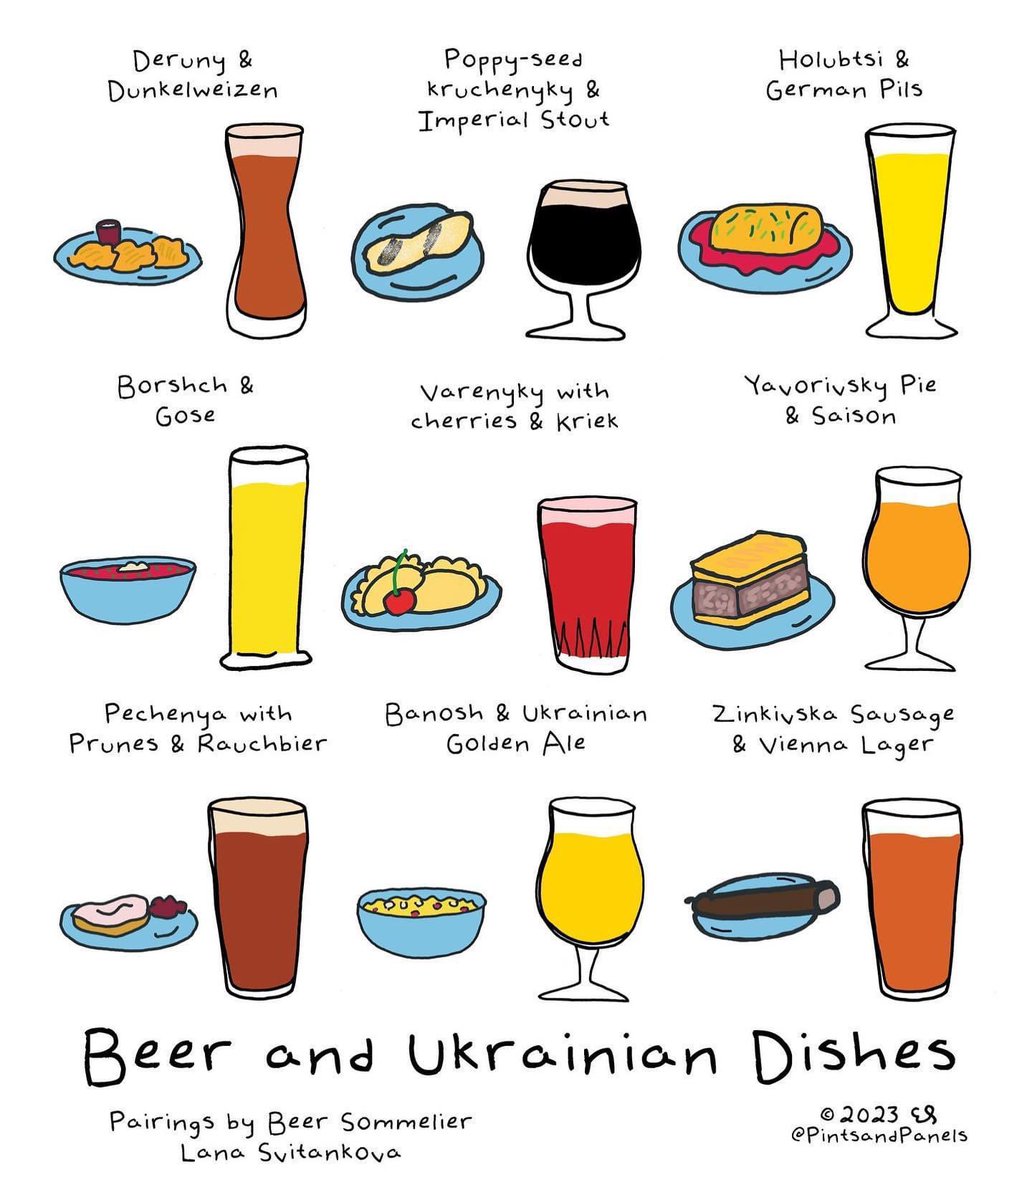 Deruny &
Dunkelweizen
Poppy-seed
kruchenyky &
Imperial Stout
Holubtsi &
German Pils
Borshch &
Gose
Varenyky with
cherries & Kriek
Yavorivsky Pie
& Saison
Pechenya with
Prunes & Rauchbier
Banosh & Ukrainian
Golden Ale
Zinkivska Sausage
& Vienna Lager
Beer and Ukrainian Dishes
Pairings by Beer Sommelier
Lana Svitankova
© 2023
@PintsandPanels